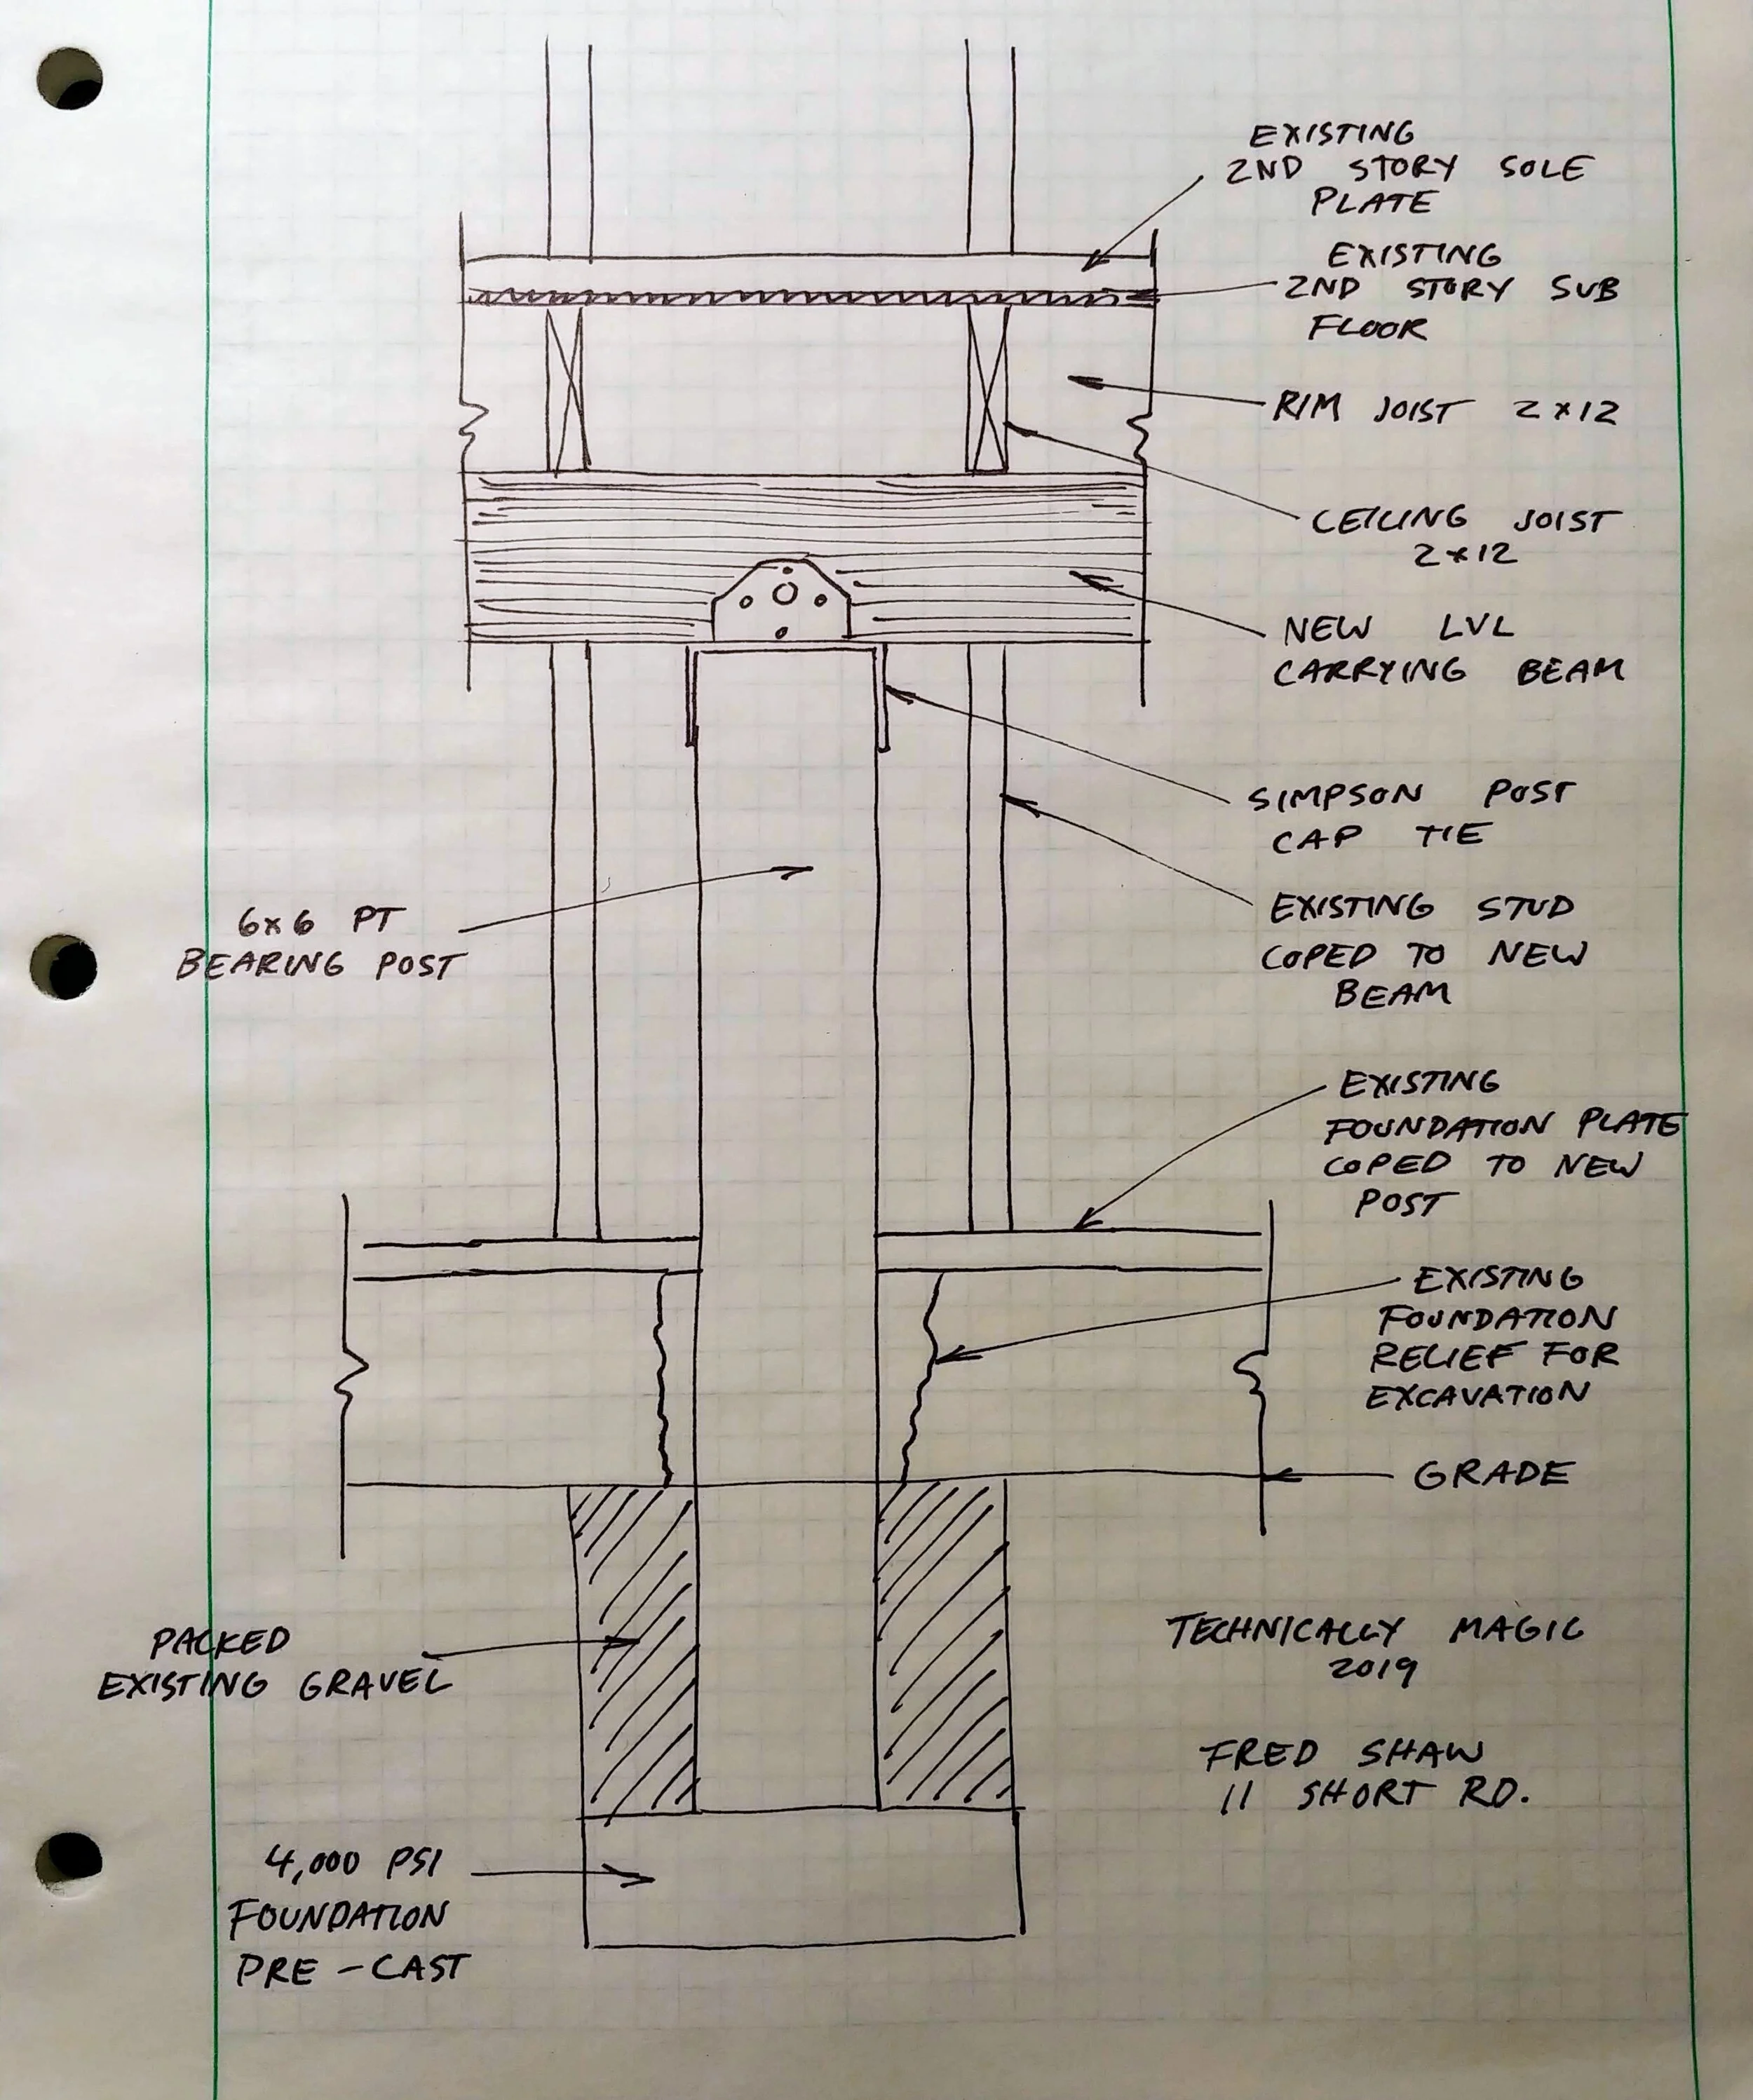 EXISTING
2ND STORY SOLE
PLATE
EXISTING
2ND STORY SUB
FLOOR
RIM JOIST 2x12
CEILING JOIST
2x12
NEW LVL
CARRYING BEAM
SIMPSON POST
CAP TIE
EXISTING STUD
COPED TO NEW
BEAM
6x6 PT
BEARING POST
EXISTING
FOUNDATION PLATE
COPED TO NEW
POST
EXISTING
FOUNDATION
RELIEF FOR
EXCAVATION
GRADE
PACKED
EXISTING GRAVEL
TECHNICALLY MAGIC
2019
FRED SHAW
11 SHORT RD.
4,000 PSI
FOUNDATION
PRE-CAST